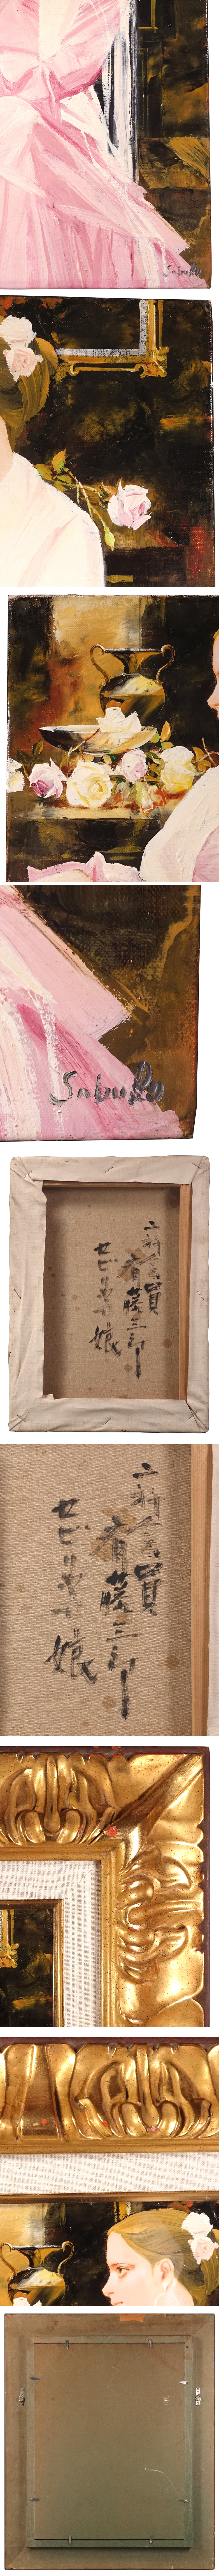 二科会員
斉藤三郎
セビリヤの娘
二科会員
斉藤三郎
セビリヤの娘